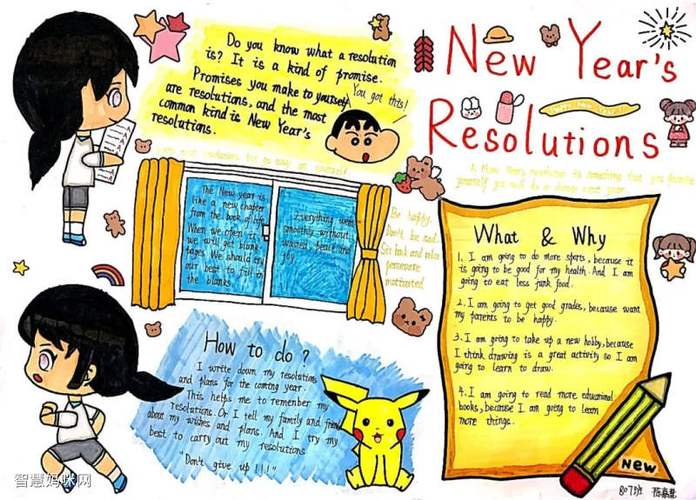 Do you know what a resolution
is? It is a kind of promise.
Promises you make to yourself
are resolutions, and the most
common kind is New Year's
resolutions.
You got this!
New Year's
Resolutions
The New year is
like a new chapter
from the book of life.
When we open it,
we will get blank
pages. We should try
our best to fill in
the blanks.
Everything went
smoothly without
and
joy.
Be happy.
Don't be sad.
Sit back and relax
persevere
motivated.
What & Why
1. I am going to do more sports, because it
is going to be good for my health. And I am
going to eat less junk food.
2. I am going to get good grades, because want
my parents to be happy.
3. I am going to take up a new hobby, because
I think drawing is a great activity so I am
going to learn to draw.
4. I am going to read more educational
books, because I am going to learn
more things.
New
How to do?
I write down my resolutions
and plans for the coming year.
This helps me to remember my
resolutions. Or I tell my family and friends
about my wishes and plans. And I try my
best to carry out my resolutions
"Don't give up!!!"
智慧妈咪网
807班